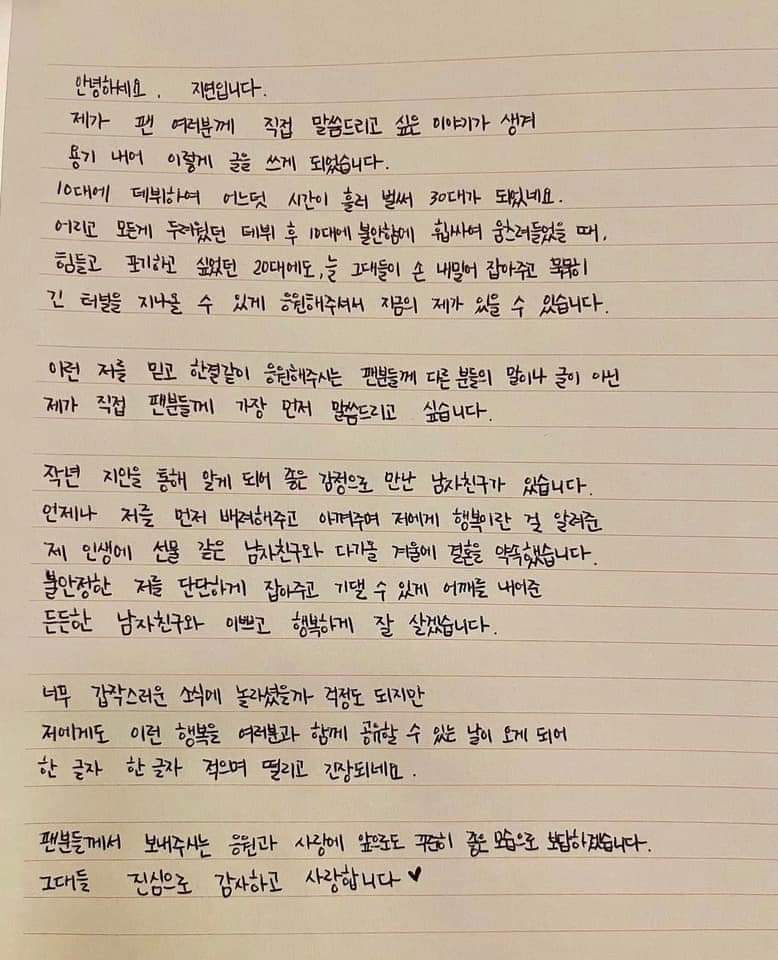 안녕하세요. 지연입니다.
제가 팬 여러분께 직접 말씀드리고 싶은 이야기가 생겨
용기 내어 이렇게 글을 쓰게 되었습니다.
10대에 데뷔하여 어느덧 시간이 흘러 벌써 30대가 되었네요.
어리고 모든게 두려웠던 데뷔 후 10대에 불안함에 휩싸여 움츠려들었을 때,
힘들고 포기하고 싶었던 20대에도, 늘 그대들이 손 내밀어 잡아주고 묵묵히
긴 터널을 지나올 수 있게 응원해주셔서 지금의 제가 있을 수 있습니다.
이런 저를 믿고 한결같이 응원해주시는 팬분들께 다른 분들의 말이나 글이 아닌
제가 직접 팬분들께 가장 먼저 말씀드리고 싶습니다.
작년 지인을 통해 알게 되어 좋은 감정으로 만난 남자친구가 있습니다.
언제나 저를 먼저 배려해주고 아껴주며 저에게 행복이란 걸 알려준
제 인생에 선물 같은 남자친구와 다가올 겨울에 결혼을 약속했습니다.
불안정한 저를 단단하게 잡아주고 기댈 수 있게 어깨를 내어준
든든한 남자친구와 이쁘고 행복하게 잘 살겠습니다.
너무 갑작스러운 소식에 놀라셨을까 걱정도 되지만
저에게도 이런 행복을 여러분과 함께 공유할 수 있는 날이 오게 되어
한 글자 한 글자 적으며 떨리고 긴장되네요.
팬분들께서 보내주시는 응원과 사랑에 앞으로도 꾸준히 좋은 모습으로 보답하겠습니다.
그대들 진심으로 감사하고 사랑합니다♥